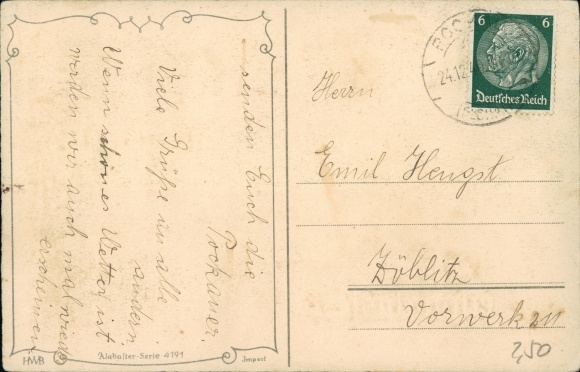 senden Euch die
Pockauer.
Viele Grüße an alle
andern.
Wenn schönes Wetter ist
werden wir auch mal wieder
erscheinen
HWB
Alabaster-Serie 4191
Import
6 6
Deutsches Reich
POC
24.12.
Herrn
Emil Hengst
Zöblitz
Vorwerk
2,50